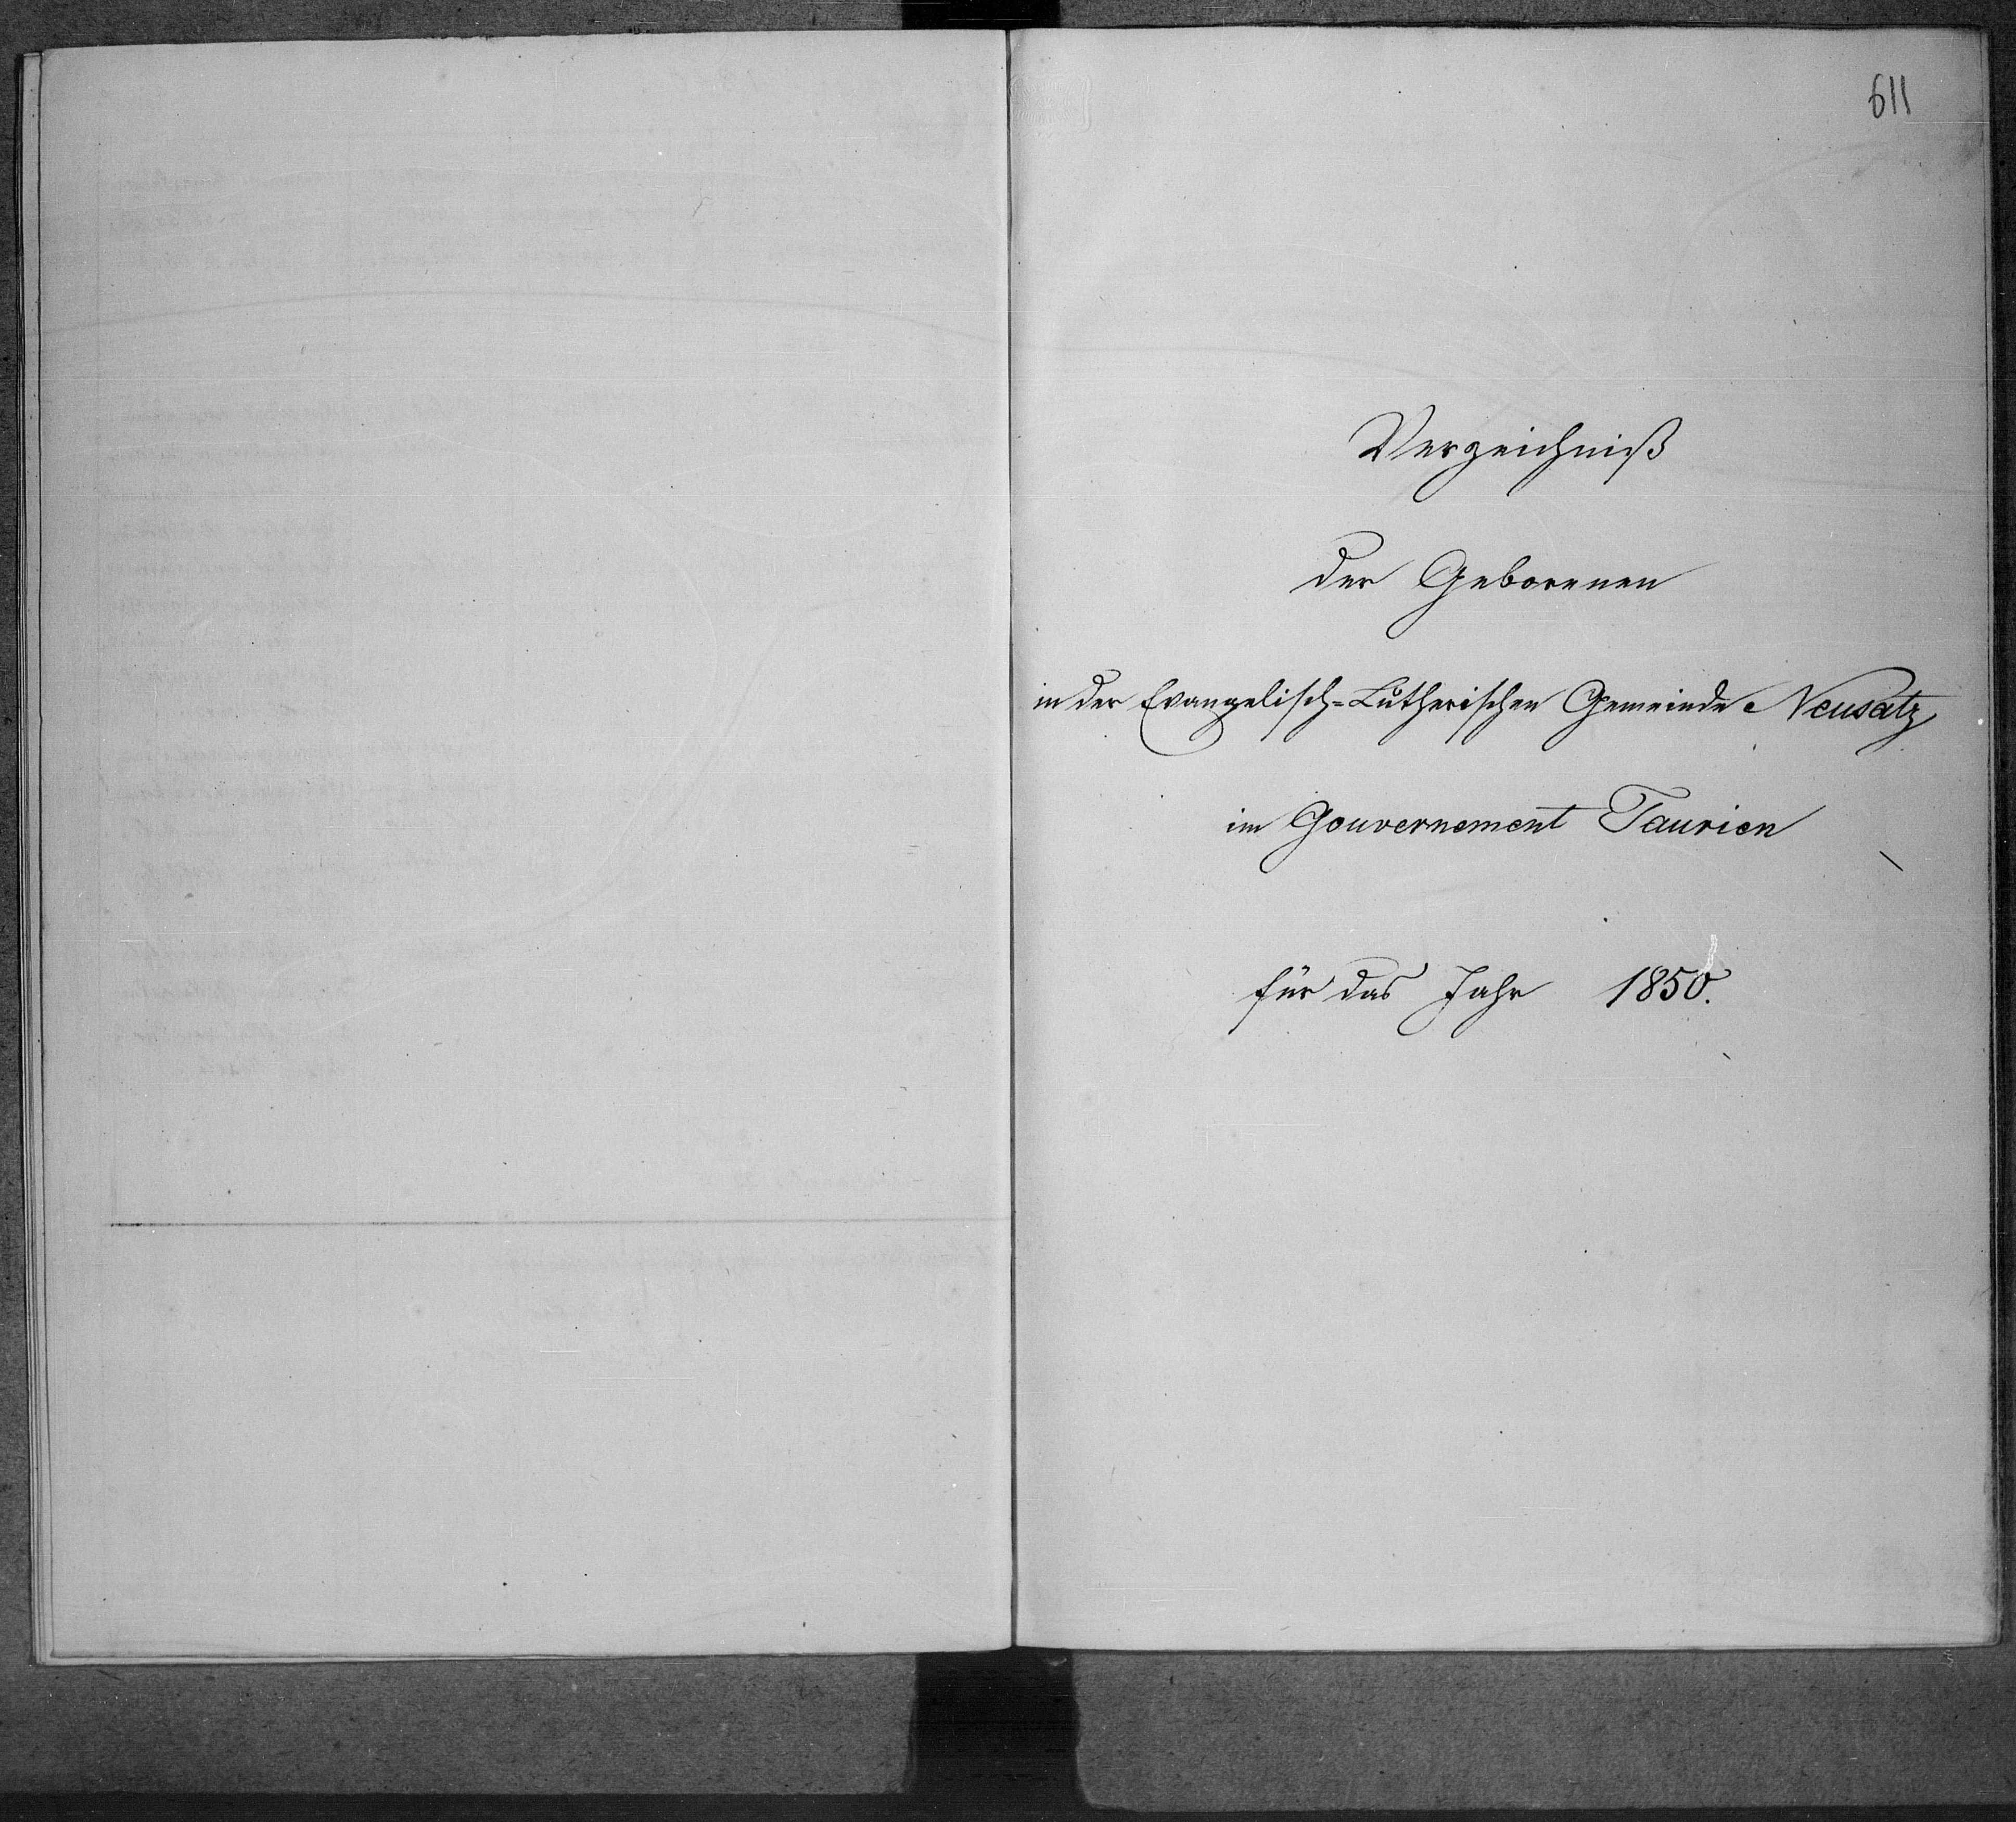 611
Verzeichniß
der Geborenen
in der Evangelisch=Lutherischen Gemeinde Neusatz
im Gouvernement Taurien
für das Jahr 1850.